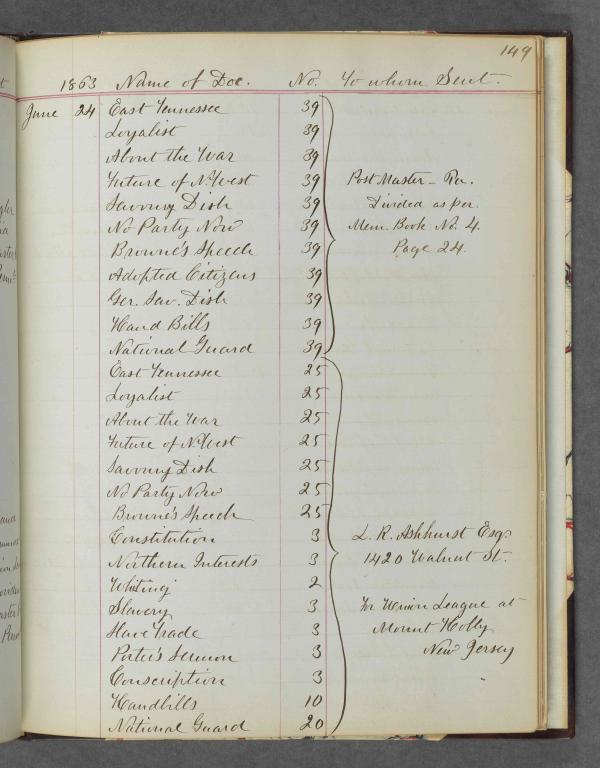 149
1863 Name of Doc. No. To whom Sent.
June 24 East Tennessee 39
Loyalist 39
About the War 39
Future of N. West 39 Post Master - Pa.
Savoury Dish 39 Divided as per.
No Party Now 39 Mem. Book No. 4.
Browne's Speech 39 Page 24.
Adopted Citizens 39
Ger. Sav. Dish 39
Hand Bills 39
National Guard 39
East Tennessee 25
Loyalist 25
About the War 25
Future of N. West 25
Savoury Dish 25
No Party Now 25
Browne's Speech 25
Constitution 3 L. R. Ashhurst Esq.
Northern Interests 3 1420 Walnut St.
Whiting 2
Slavery 3 For Union League at
Slave Trade 3 Mount Holly
Porter's Sermon 3 New Jersey
Conscription 3
Handbills 10
National Guard 20